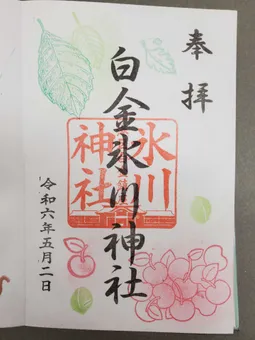 奉拝
白金氷川神社
氷川
神社
令和六年五月二日